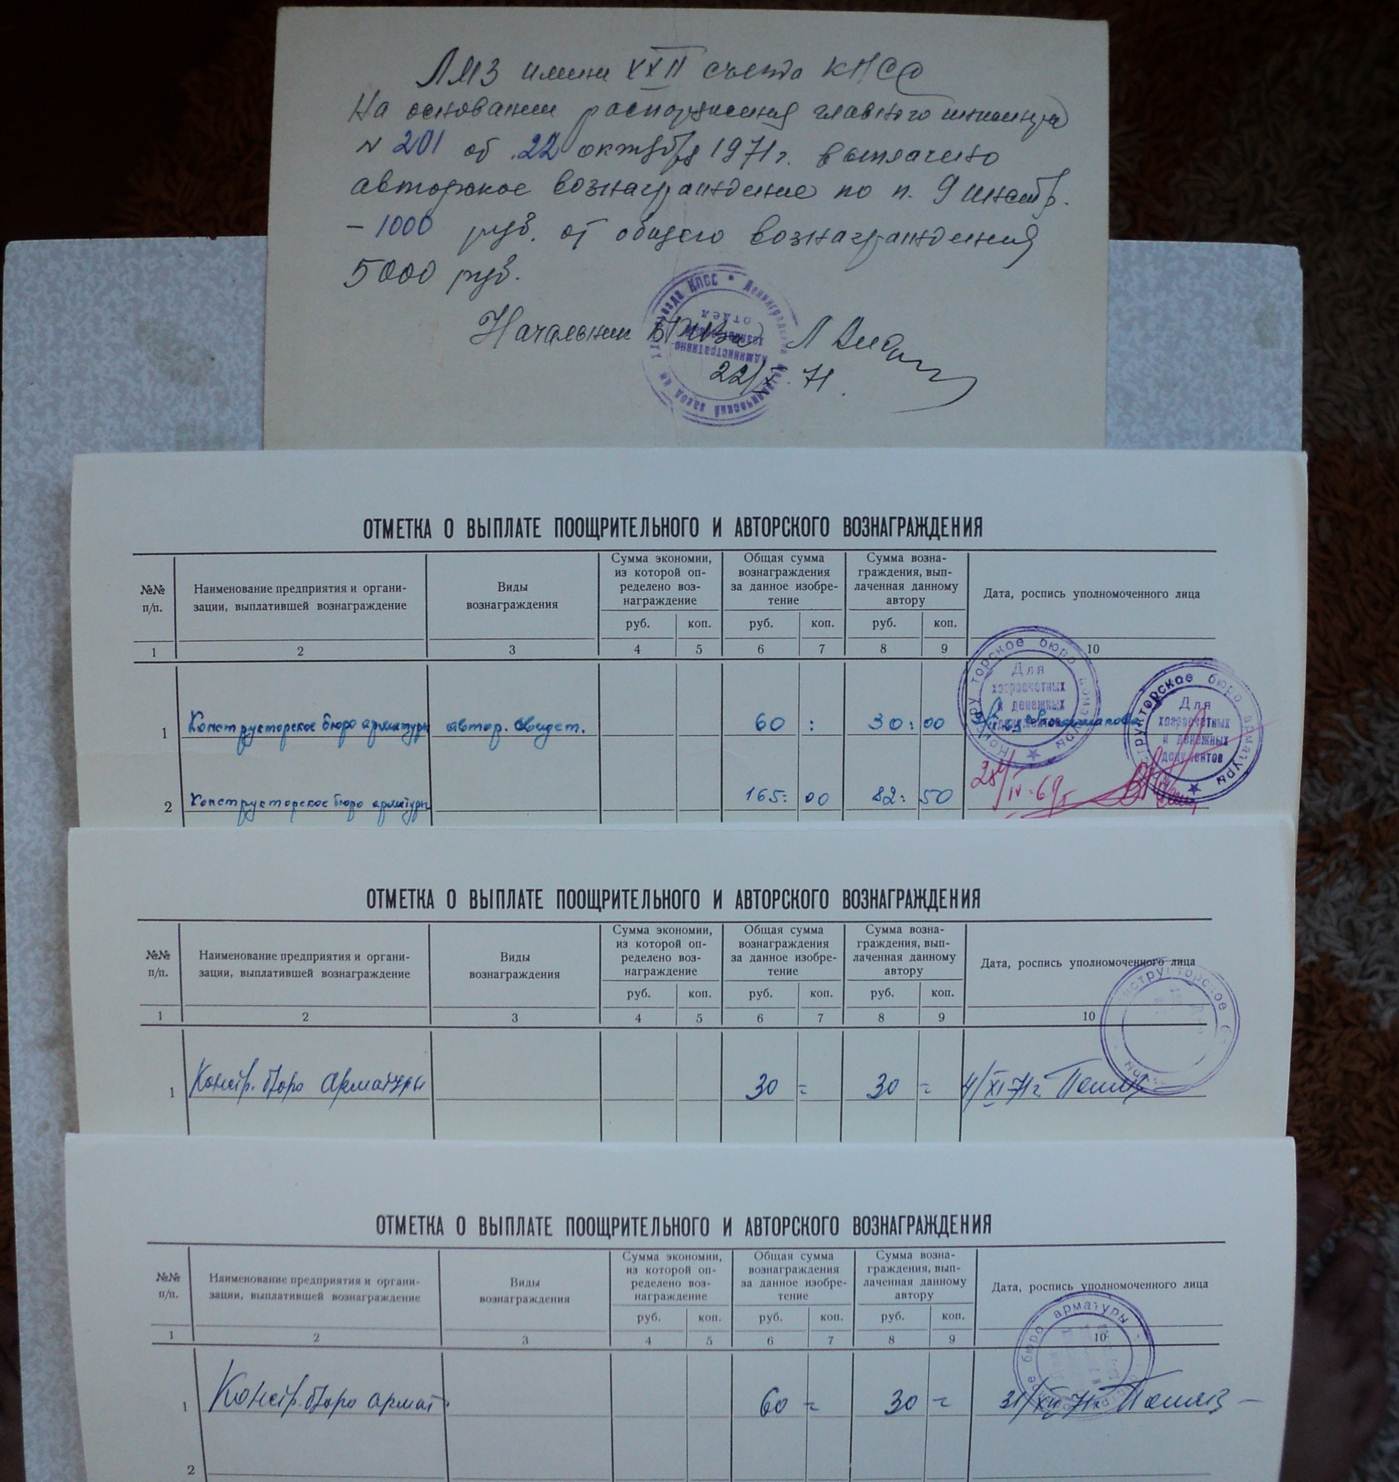 ЛМЗ имени XXII съезда КПСС
На основании распоряжения главного инженера
N 201 от 22 октября 1971 г. выплачено
авторское вознаграждение по п. 9 инстр.
– 1000 руб. от общего вознаграждения
5000 руб.
Начальник
22/ 71.
ОТМЕТКА О ВЫПЛАТЕ ПООЩРИТЕЛЬНОГО И АВТОРСКОГО ВОЗНАГРАЖДЕНИЯ
№№ п/п. Наименование предприятия и органи-зации, выплатившей вознаграждение Виды вознаграждения Сумма экономии, из которой оп-ределено воз-награждение Общая сумма вознаграждения за данное изобре-тение Сумма возна-граждения, вып-лаченная данному автору Дата, роспись уполномоченного лица
руб. коп. руб. коп. руб. коп.
1 2 3 4 5 6 7 8 9 10
Для хозрасчетных и денежных документов
Конструкторское бюро арматуры
1 Конструкторское бюро арматуры автор. свидет. 60 : 30 : 00
2 Конструкторское бюро арматуры 165 : 00 82 : 50 28/IV-69г
ОТМЕТКА О ВЫПЛАТЕ ПООЩРИТЕЛЬНОГО И АВТОРСКОГО ВОЗНАГРАЖДЕНИЯ
№№ п/п. Наименование предприятия и органи-зации, выплатившей вознаграждение Виды вознаграждения Сумма экономии, из которой оп-ределено воз-награждение Общая сумма вознаграждения за данное изобре-тение Сумма возна-граждения, вып-лаченная данному автору Дата, роспись уполномоченного лица
руб. коп. руб. коп. руб. коп.
1 2 3 4 5 6 7 8 9 10
1 Констр. бюро арматуры 30 = 30 = 4/XI-71г.
ОТМЕТКА О ВЫПЛАТЕ ПООЩРИТЕЛЬНОГО И АВТОРСКОГО ВОЗНАГРАЖДЕНИЯ
№№ п/п. Наименование предприятия и органи-зации, выплатившей вознаграждение Виды вознаграждения Сумма экономии, из которой оп-ределено воз-награждение Общая сумма вознаграждения за данное изобре-тение Сумма возна-граждения, вып-лаченная данному автору Дата, роспись уполномоченного лица
руб. коп. руб. коп. руб. коп.
1 2 3 4 5 6 7 8 9 10
1 Констр. бюро армат. 60 = 30 = 31/XII-71г.
2